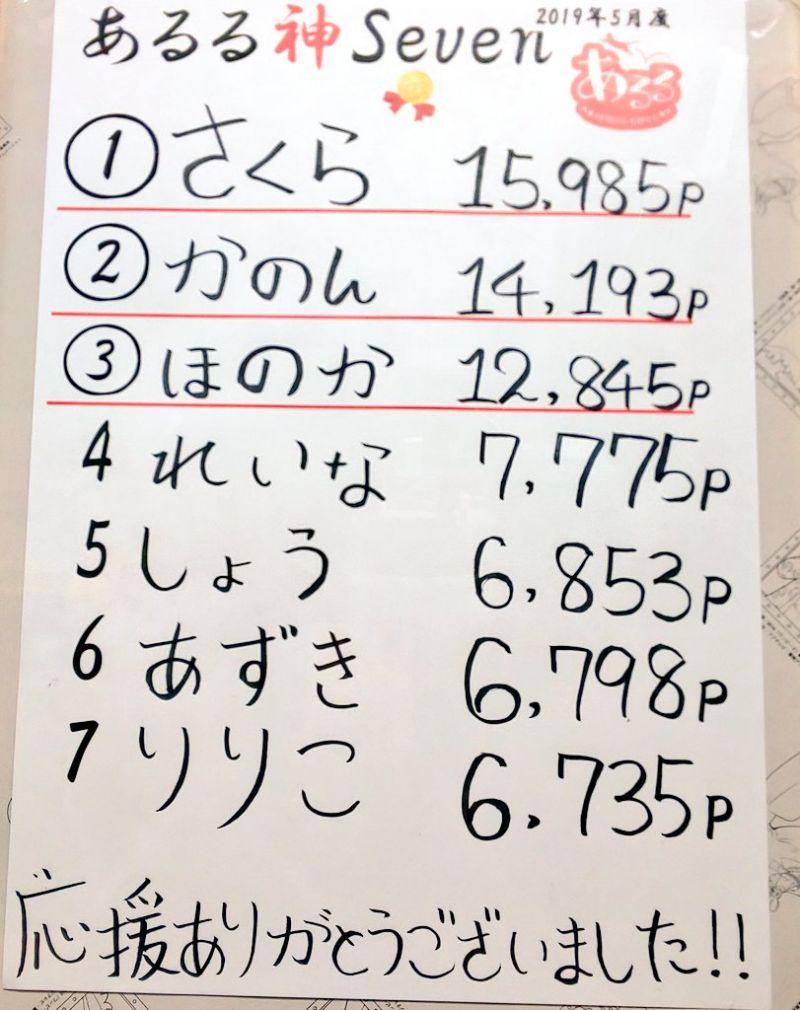 2019年5月度
あるる神Seven
あるる
① さくら 15,985P
② かのん 14,193P
③ ほのか 12,845P
4 れいな 7,775P
5 しょう 6,853P
6 あずき 6,798P
7 りりこ 6,735P
応援ありがとうございました!!